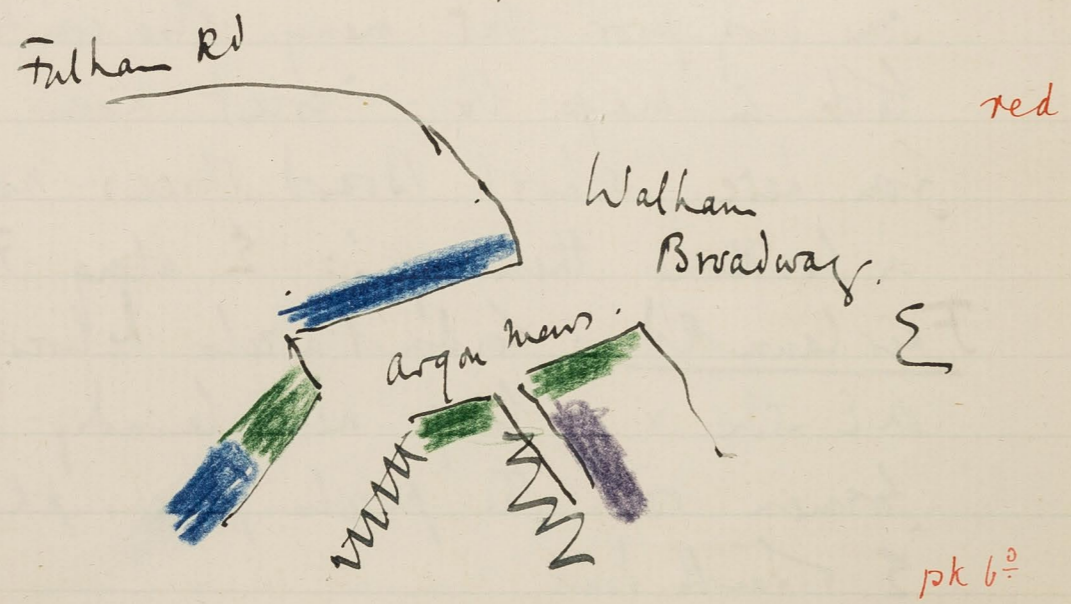 Fulham Rd
red
Walham
Broadway.
Argon Mews.
E
pk 6º